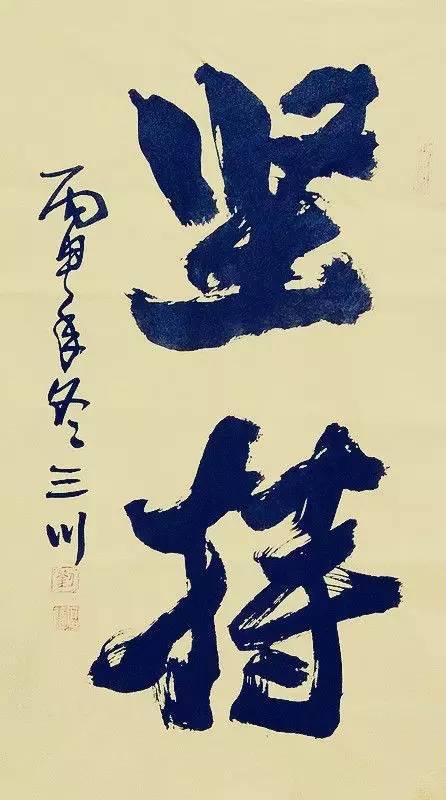 坚持
丙申年冬三川